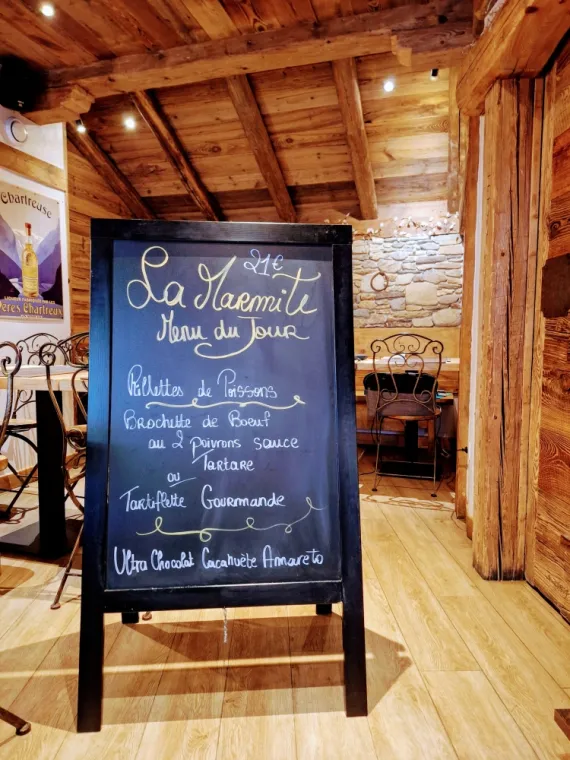 Chartreuse
Pères Chartreux
21€
La Marmite
Menu du Jour
Rillettes de Poissons
Brochette de Boeuf
au 2 poivrons sauce
Tartare
ou
Tartiflette Gourmande
Ultra Chocolat Cacahuète Amareto